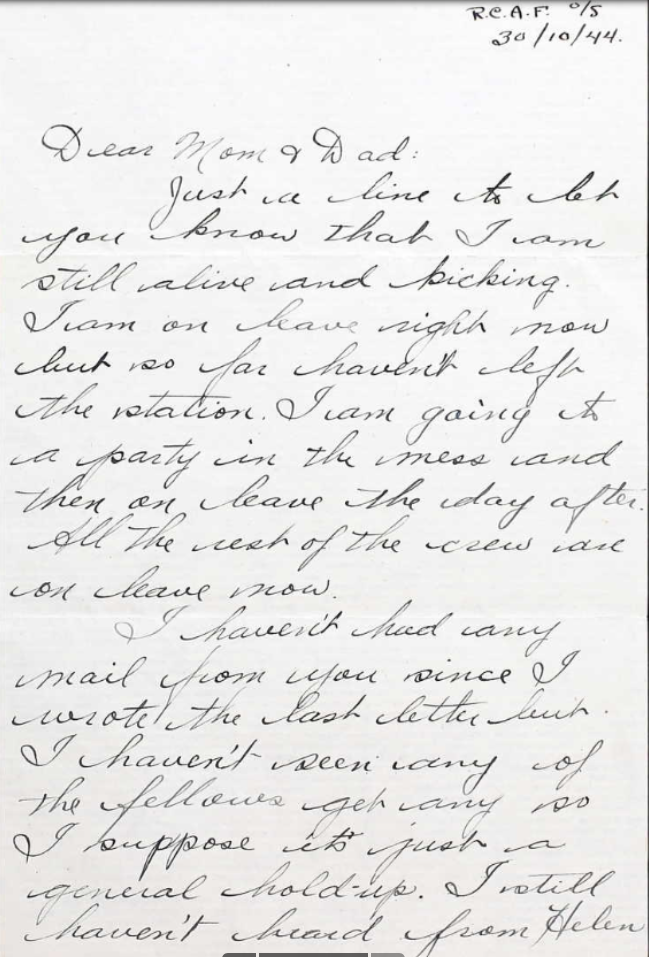 R.C.A.F. O/S
30/10/44.
Dear Mom & Dad:
Just a line to let
you know that I am
still alive and kicking.
I am on leave right now
but so far haven't left
the station. I am going to
a party in the mess and
then on leave the day after.
All the rest of the crew are
on leave now.
I haven't had any
mail from you since I
wrote the last letter but
I haven't seen any of
the fellows get any so
I suppose it's just a
general hold-up. I still
haven't heard from Helen